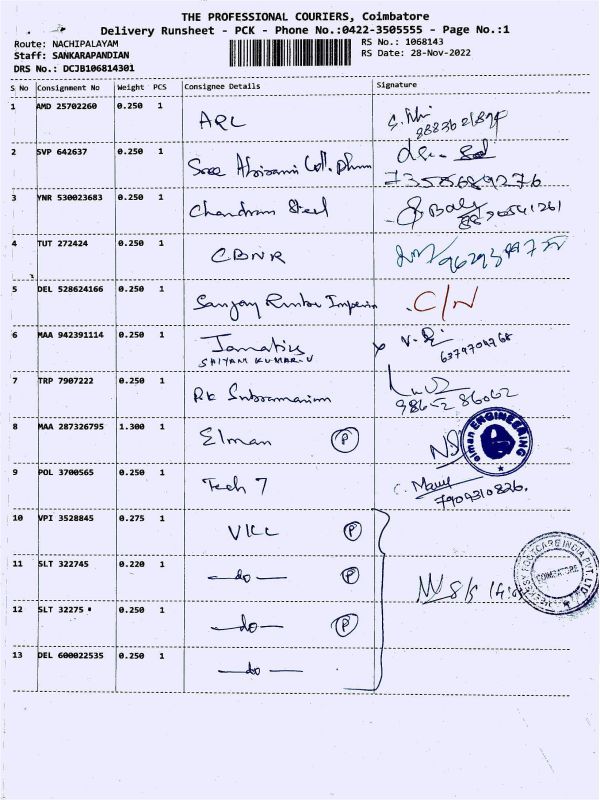 THE PROFESSIONAL COURIERS, Coimbatore
Delivery Runsheet - PCK - Phone No.:0422-3505555 - Page No.:1
Route: NACHIPALAYAM
Staff: SANKARAPANDIAN
DRS No.: DCJB106814301
RS No.: 1068143
RS Date: 28-Nov-2022
S No Consignment No Weight PCS Consignee Details Signature
1 AMD 25702260 0.250 1
2 SVP 642637 0.250 1 Coll. 7358689276
3 YNR 530023683 0.250 1 Chandran Steel
4 TUT 272424 0.250 1 CBNR
5 DEL 528624166 0.250 1 Sanjay C/N
6 MAA 942391114 0.250 1
SHYAM KUMAR.U
7 TRP 7907222 0.250 1 RK Subramaniam
98652 86062
8 MAA 287326795 1.300 1 Elman P
elman ENGINEERING
9 POL 3700565 0.250 1 Tech 7
7909310826.
10 VPI 3528845 0.275 1 VKC P
11 SLT 322745 0.220 1 -do- P
12 SLT 32275 0.250 1 -do- P
13 DEL 600022535 0.250 1 -do-
FOOTCARE INDIA PVT. LTD
COIMBATORE